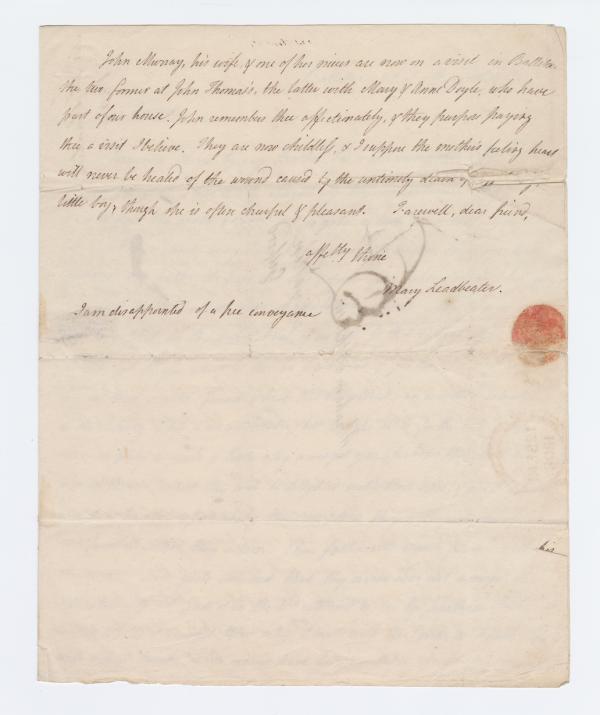 John Murray, his wife, & one of her nieces are now on a visit in
the two former at John Thomas's, the latter with Mary & Anne Doyle, who have
part of our house. John remembers thee affectionately, & they purpose paying
thee a visit I believe. They are now childless, & I suppose the mother's feeling heart
will never be healed of the wound caused by the untimely death of
little boy, though she is often cheerful & pleasant. Farewell, dear friend,
affectly thine
Mary Leadbeater.
I am disappointed of a free conveyance
his